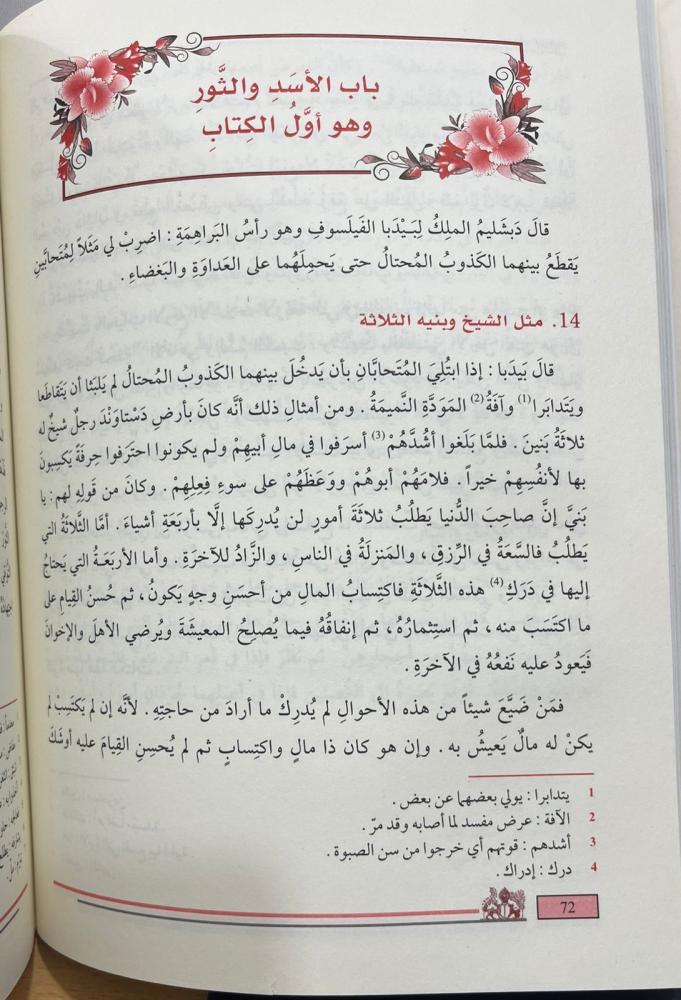 باب الأسَدِ والثَّورِ
وهو أوَّلُ الكِتابِ
قالَ دَبشَليمُ الملِكُ لِبَيْدَبا الفَيلَسوفِ وهو رأسُ البَراهِمَةِ : اضرِبْ لي مَثَلاً لِمُتَحابَّينِ
يَقطَعُ بينهما الكَذوبُ المُحتالُ حتى يَحمِلَهُما على العَداوَةِ والبَغضاءِ .
14. مثل الشيخ وبنيه الثلاثة
قالَ بَيدَبا : إذا ابتُلِيَ المُتَحابَّانِ بأن يَدخُلَ بينهما الكَذوبُ المُحتالُ لم يَلبَثا أن يَتَقاطَعا
ويَتَدابَرا(1) وآفَةُ(2) المَوَدَّةِ النَّميمَةُ . ومن أمثالِ ذلك أنَّه كانَ بأرضِ دَسْتاوَنْدَ رجلٌ شيخٌ له
ثلاثةُ بَنينَ . فلمَّا بَلَغوا أشُدَّهُمْ(3) أسرَفوا في مالِ أبيهِمْ ولم يكونوا احترَفوا حِرفَةً يَكسِبونَ
بها لأنفُسِهِمْ خيراً . فلامَهُمْ أبوهُمْ ووَعَظَهُمْ على سوءِ فِعلِهِمْ . وكانَ من قَولِهِ لهم : يا
بَنيَّ إنَّ صاحِبَ الدُّنيا يَطلُبُ ثلاثَةَ أمورٍ لن يُدرِكَها إلَّا بأربَعَةِ أشياءَ . أمَّا الثَّلاثَةُ التي
يَطلُبُ فالسَّعَةُ في الرِّزقِ ، والمَنزِلَةُ في الناسِ ، والزَّادُ للآخرَةِ . وأما الأربَعَةُ التي يَحتاجُ
إليها في دَرَكِ(4) هذه الثَّلاثَةِ فاكتِسابُ المالِ من أحسَنِ وجهٍ يَكونُ ، ثم حُسنُ القِيامِ على
ما اكتَسَبَ منه ، ثم استِثمارُهُ ، ثم إنفاقُهُ فيما يُصلِحُ المعيشَةَ ويُرضي الأهلَ والإخوانَ
فَيَعودُ عليه نَفعُهُ في الآخرَةِ .
فمَنْ ضَيَّعَ شيئاً من هذه الأحوالِ لم يُدرِكْ ما أرادَ من حاجتِهِ . لأنَّه إن لم يَكتَسِبْ لم
يكنْ له مالٌ يَعيشُ به . وإن هو كان ذا مالٍ واكتِسابٍ ثم لم يُحسِنِ القِيامَ عليه أوشَكَ
1 يتدابرا : يولي بعضهما عن بعض .
2 الآفة : عرض مفسد لما أصابه وقد مرّ .
3 أشدهم : قوتهم أي خرجوا من سن الصبوة .
4 درك : إدراك .
72